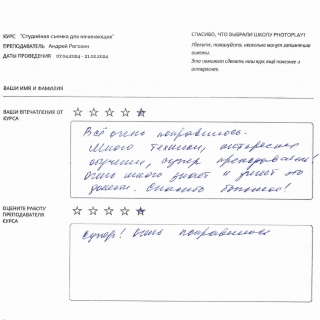 КУРС "Студийная съемка для начинающих"
ПРЕПОДАВАТЕЛЬ Андрей Рогозин
ДАТЫ ПРОВЕДЕНИЯ 07.02.2024 - 21.02.2024
СПАСИБО, ЧТО ВЫБРАЛИ ШКОЛУ PHOTOPLAY!
Уделите, пожалуйста, несколько минут заполнению анкеты.
Это поможет сделать наш курс ещё полезнее и интереснее.
ВАШИ ИМЯ И ФАМИЛИЯ
ВАШИ ВПЕЧАТЛЕНИЯ ОТ КУРСА
Всё очень понравилось.
Много техники, интересное
обучение, супер преподаватель!
Очень много знает и умеет это
донести. Спасибо большое!
ОЦЕНИТЕ РАБОТУ ПРЕПОДАВАТЕЛЯ КУРСА
Супер! Очень понравилось